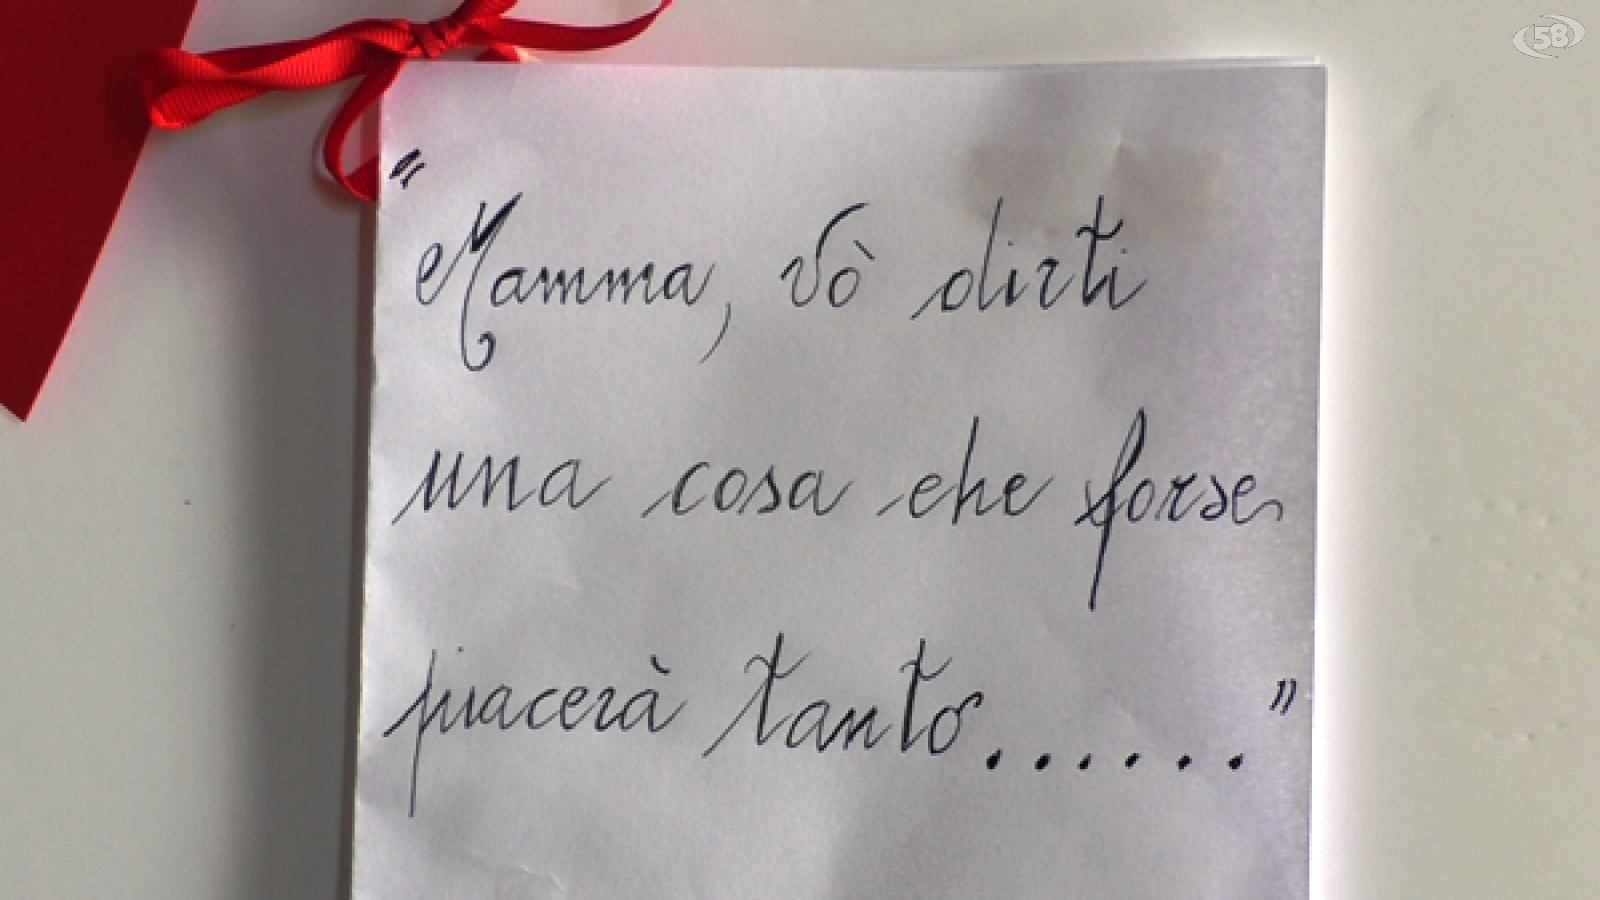 58
"Mamma, vò dirti
una cosa che forse
piacerà tanto......"